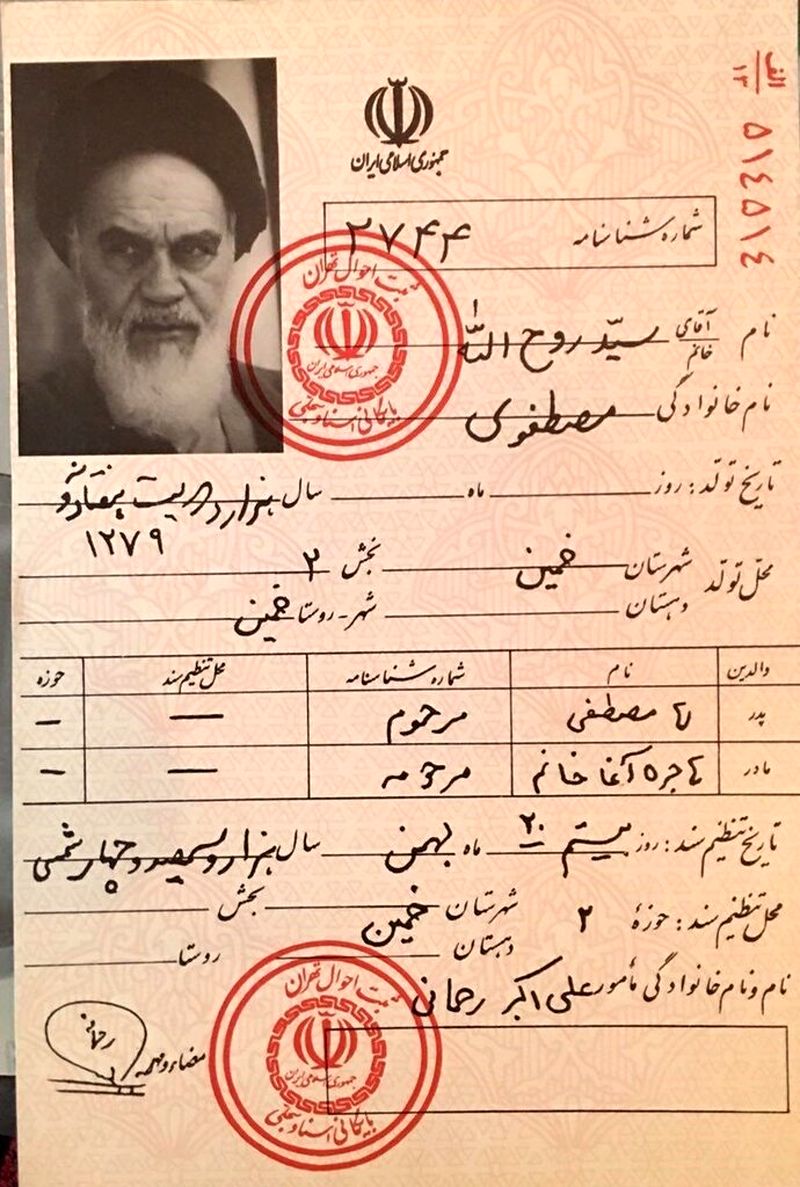 الف
۱۳
۵۱۴۵۱۴
جمهوری اسلامی ایران
شماره شناسنامه ۲۷۴۴
نام آقای خانم سیّد روح الله
نام خانوادگی مصطفوی
ثبت احوال تهران
جمهوری اسلامی ایران
بایگانی اسناد سجلی
تاریخ تولّد: روز ماه سال هزار دویست هفتاد و نه
۱۲۷۹
محلّ تولّد شهرستان خمین بخش ۲
دهستان شهر-روستا خمین
والدین نام شماره شناسنامه محل تنظیم سند حوزه
پدر مصطفی مرحوم — —
مادر هاجره آغا خانم مرحومه — —
تاریخ تنظیم سند: روز بیستم ۲۰ ماه بهمن سال هزار و سیصد و چهار شمسی
محل تنظیم سند: حوزهٔ ۲ شهرستان خمین بخش
دهستان روستا
نام و نام خانوادگی مأمور علی اکبر رحمانی
امضاء و مهر
ثبت احوال تهران
جمهوری اسلامی ایران
بایگانی اسناد سجلی